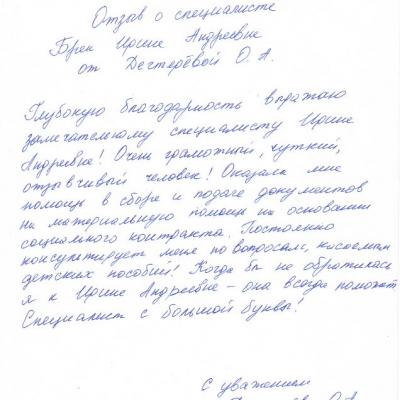 Отзыв о специалисте
Брен Ирине Андреевне
от Дегтерёвой О. А.
Глубокую благодарность выражаю
замечательному специалисту Ирине
Андреевне! Очень грамотный, чуткий,
отзывчивый человек! Оказала мне
помощь в сборе и подаче документов
на материальную помощь на основании
социального контракта. Постоянно
консультирует меня по вопросам, касаемым
детских пособий! Когда бы не обратилась
я к Ирине Андреевне – она всегда поможет.
Специалист с большой буквы!
С уважением
О. А.